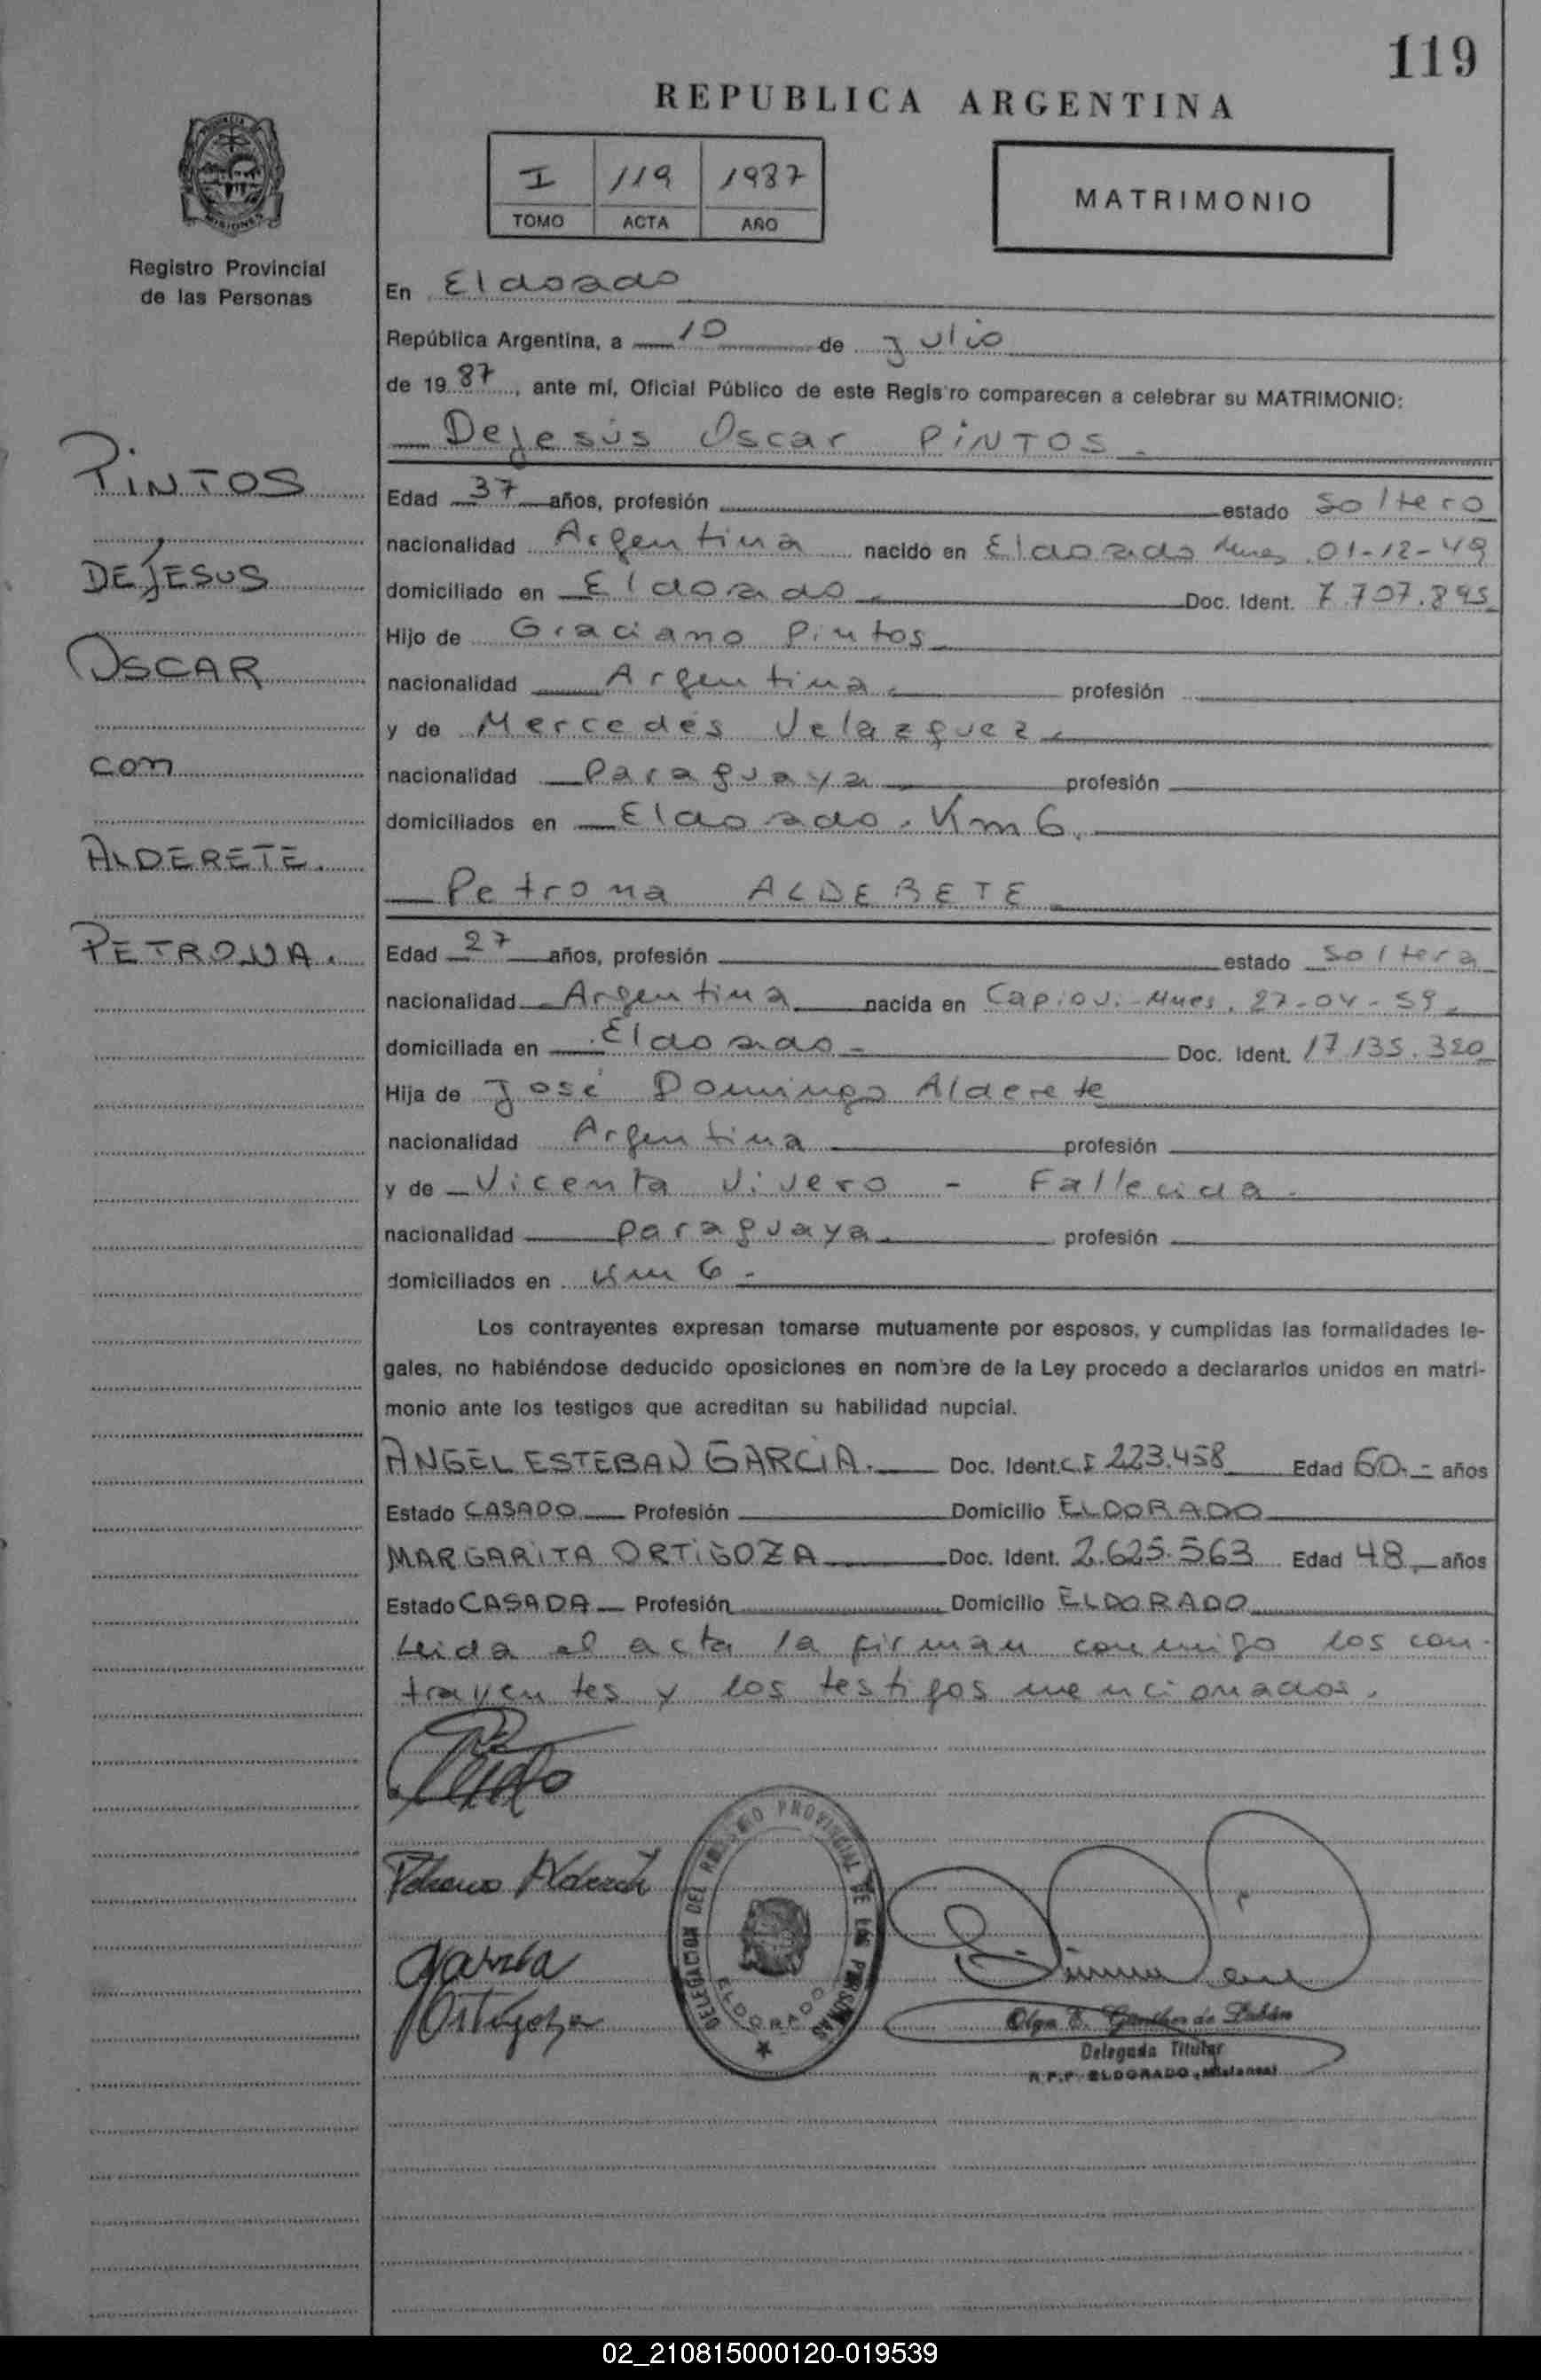 119
REPUBLICA ARGENTINA
I 119 1987
TOMO ACTA AÑO
MATRIMONIO
Registro Provincial
de las Personas
En Eldorado
República Argentina, a 10 de Julio
de 1987, ante mí, Oficial Público de este Registro comparecen a celebrar su MATRIMONIO:
Dejesús Oscar PINTOS.
PINTOS
DEJESUS
OSCAR
con
ALDERETE.
PETRONA.
Edad 37 años, profesión estado soltero
nacionalidad Argentina nacido en Eldorado Mnes 01-12-49
domiciliado en Eldorado. Doc. Ident. 7.707.895
Hijo de Graciano Pintos
nacionalidad Argentina. profesión
y de Mercedes Velazquez.
nacionalidad Paraguaya profesión
domiciliados en Eldorado. Km 6.
Petrona ALDERETE
Edad 27 años, profesión estado soltera
nacionalidad Argentina nacida en Capiovi-Mnes. 27-04-59.
domiciliada en Eldorado- Doc. Ident. 17.135.320
Hija de José Domingo Alderete
nacionalidad Argentina profesión
y de Vicenta Vivero - Fallecida.
nacionalidad paraguaya. profesión
domiciliados en Km 6-
Los contrayentes expresan tomarse mutuamente por esposos, y cumplidas las formalidades le-
gales, no habiéndose deducido oposiciones en nombre de la Ley procedo a declararlos unidos en matri-
monio ante los testigos que acreditan su habilidad nupcial.
ANGEL ESTEBAN GARCIA. Doc. Ident. C.I 223.458 Edad 60.- años
Estado CASADO Profesión Domicilio ELDORADO
MARGARITA ORTIGOZA Doc. Ident. 2.625.563 Edad 48 años
Estado CASADA Profesión Domicilio ELDORADO
Leida el acta la firman conmigo los con-
trayentes y los testigos mencionados.
Petrona Alderete
García
Ortigoza
DELEGACION DEL REGISTRO PROVINCIAL DE LAS PERSONAS
ELDORADO
Olga E. de
Delegada Titular
R.P.P. ELDORADO (Misiones)
02_210815000120-019539